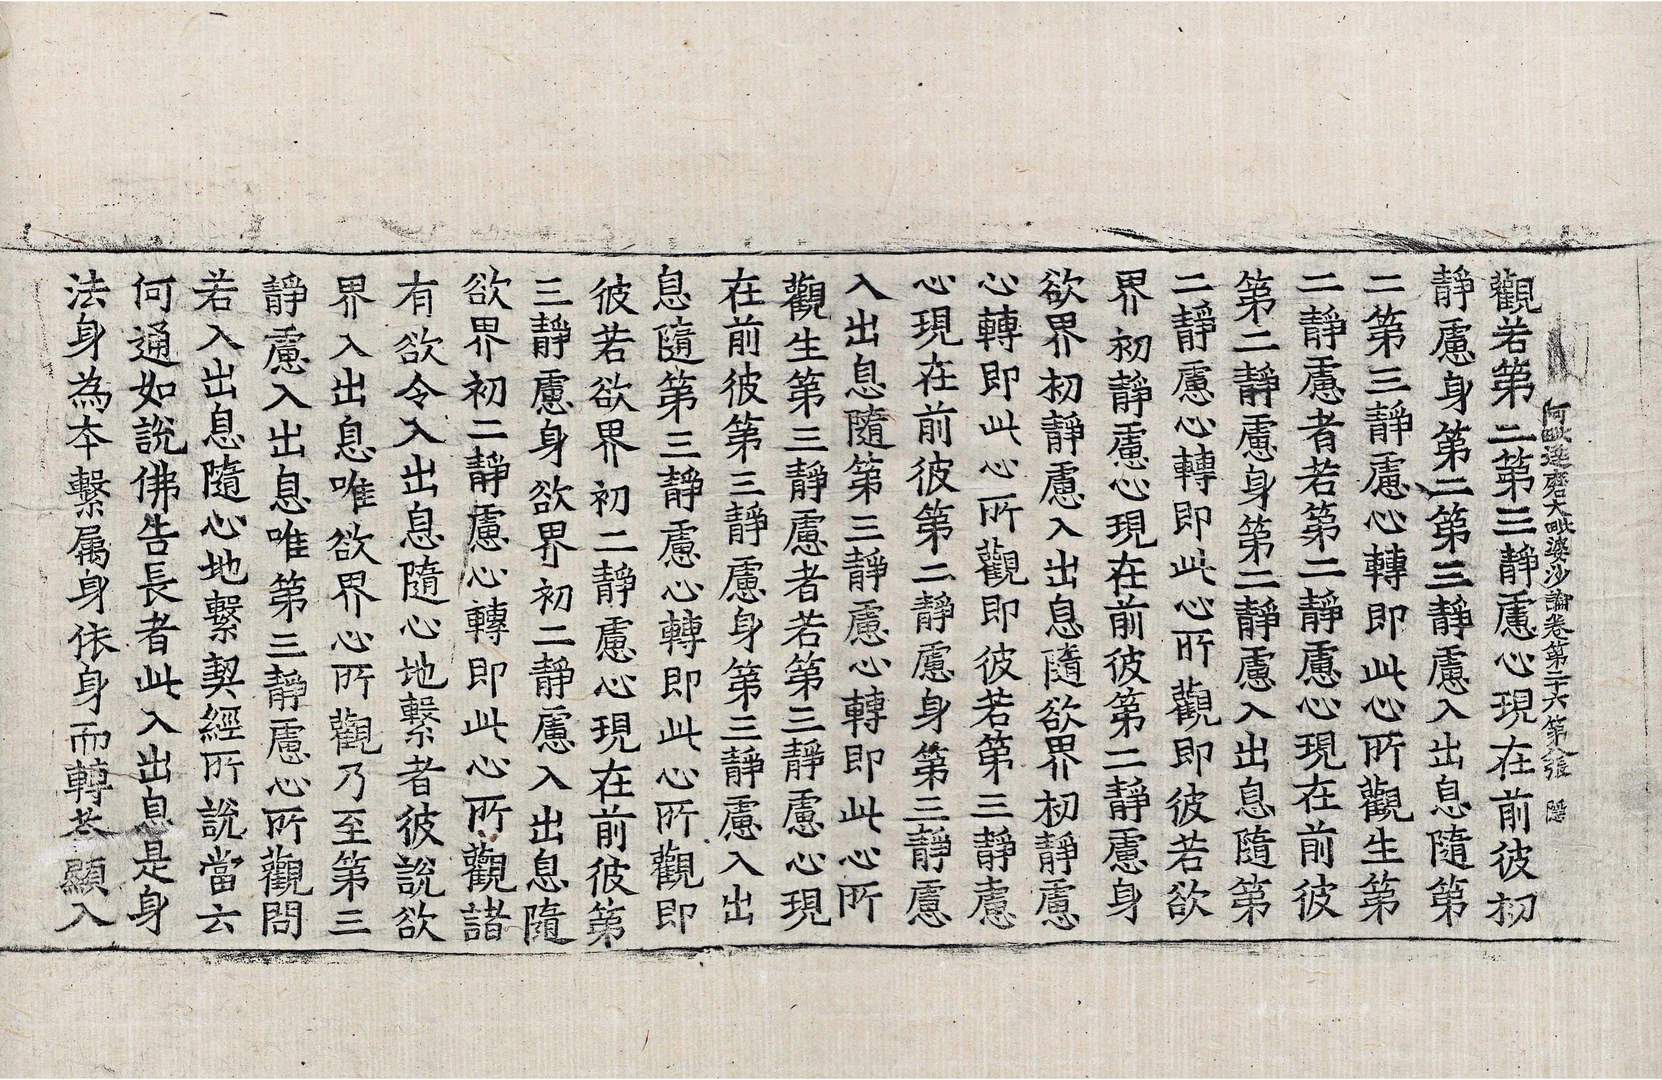 阿毗達磨大毗婆沙論卷第二十六 第八張 隱
觀若第二第三靜慮心現在前彼初
靜慮身第二第三靜慮入出息隨第
二第三靜慮心轉即此心所觀生第
二靜慮者若第二靜慮心現在前彼
第二靜慮身第二靜慮入出息隨第
二靜慮心轉即此心所觀即彼若欲
界初靜慮心現在前彼第二靜慮身
欲界初靜慮入出息隨欲界初靜慮
心轉即此心所觀即彼若第三靜慮
心現在前彼第二靜慮身第三靜慮
入出息隨第三靜慮心轉即此心所
觀生第三靜慮者若第三靜慮心現
在前彼第三靜慮身第三靜慮入出
息隨第三靜慮心轉即此心所觀即
彼若欲界初二靜慮心現在前彼第
三靜慮身欲界初二靜慮入出息隨
欲界初二靜慮心轉即此心所觀諸
有欲令入出息隨心地繫者彼說欲
界入出息唯欲界心所觀乃至第三
靜慮入出息唯第三靜慮心所觀問
若入出息隨心地繫契經所說當云
何通如說佛告長者此入出息是身
法身為本繫屬身依身而轉若顯入